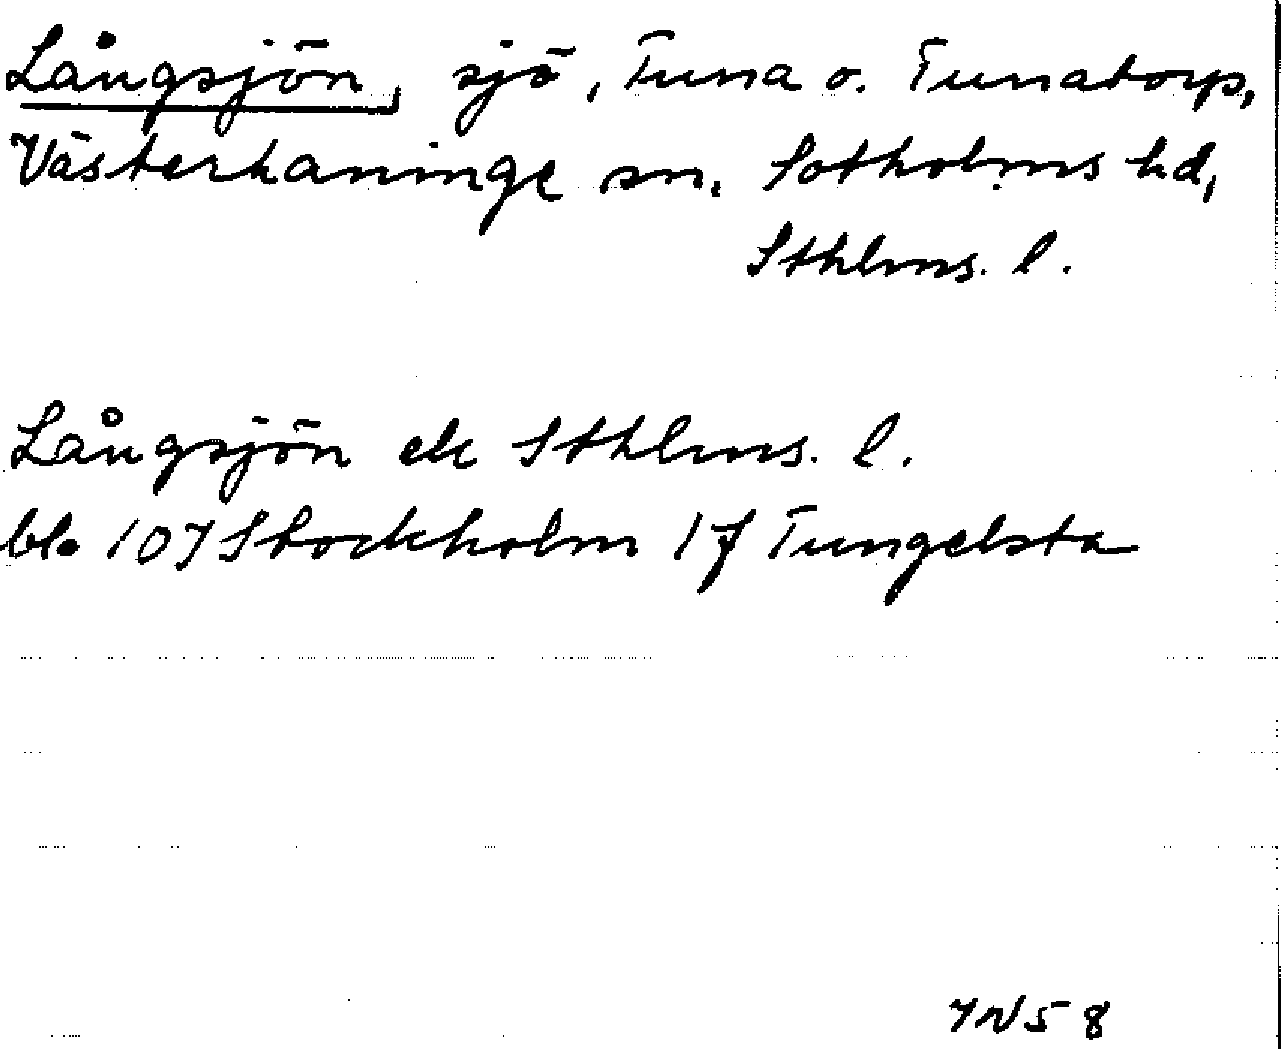 Långsjön, sjö, Tuna o. Tunatorp,
Västerhaninge sn, Sotholms hd,
Sthlms. l.
Långsjön ek Sthlms. l.
bl. 107 Stockholm 1f Tungelsta
7N58